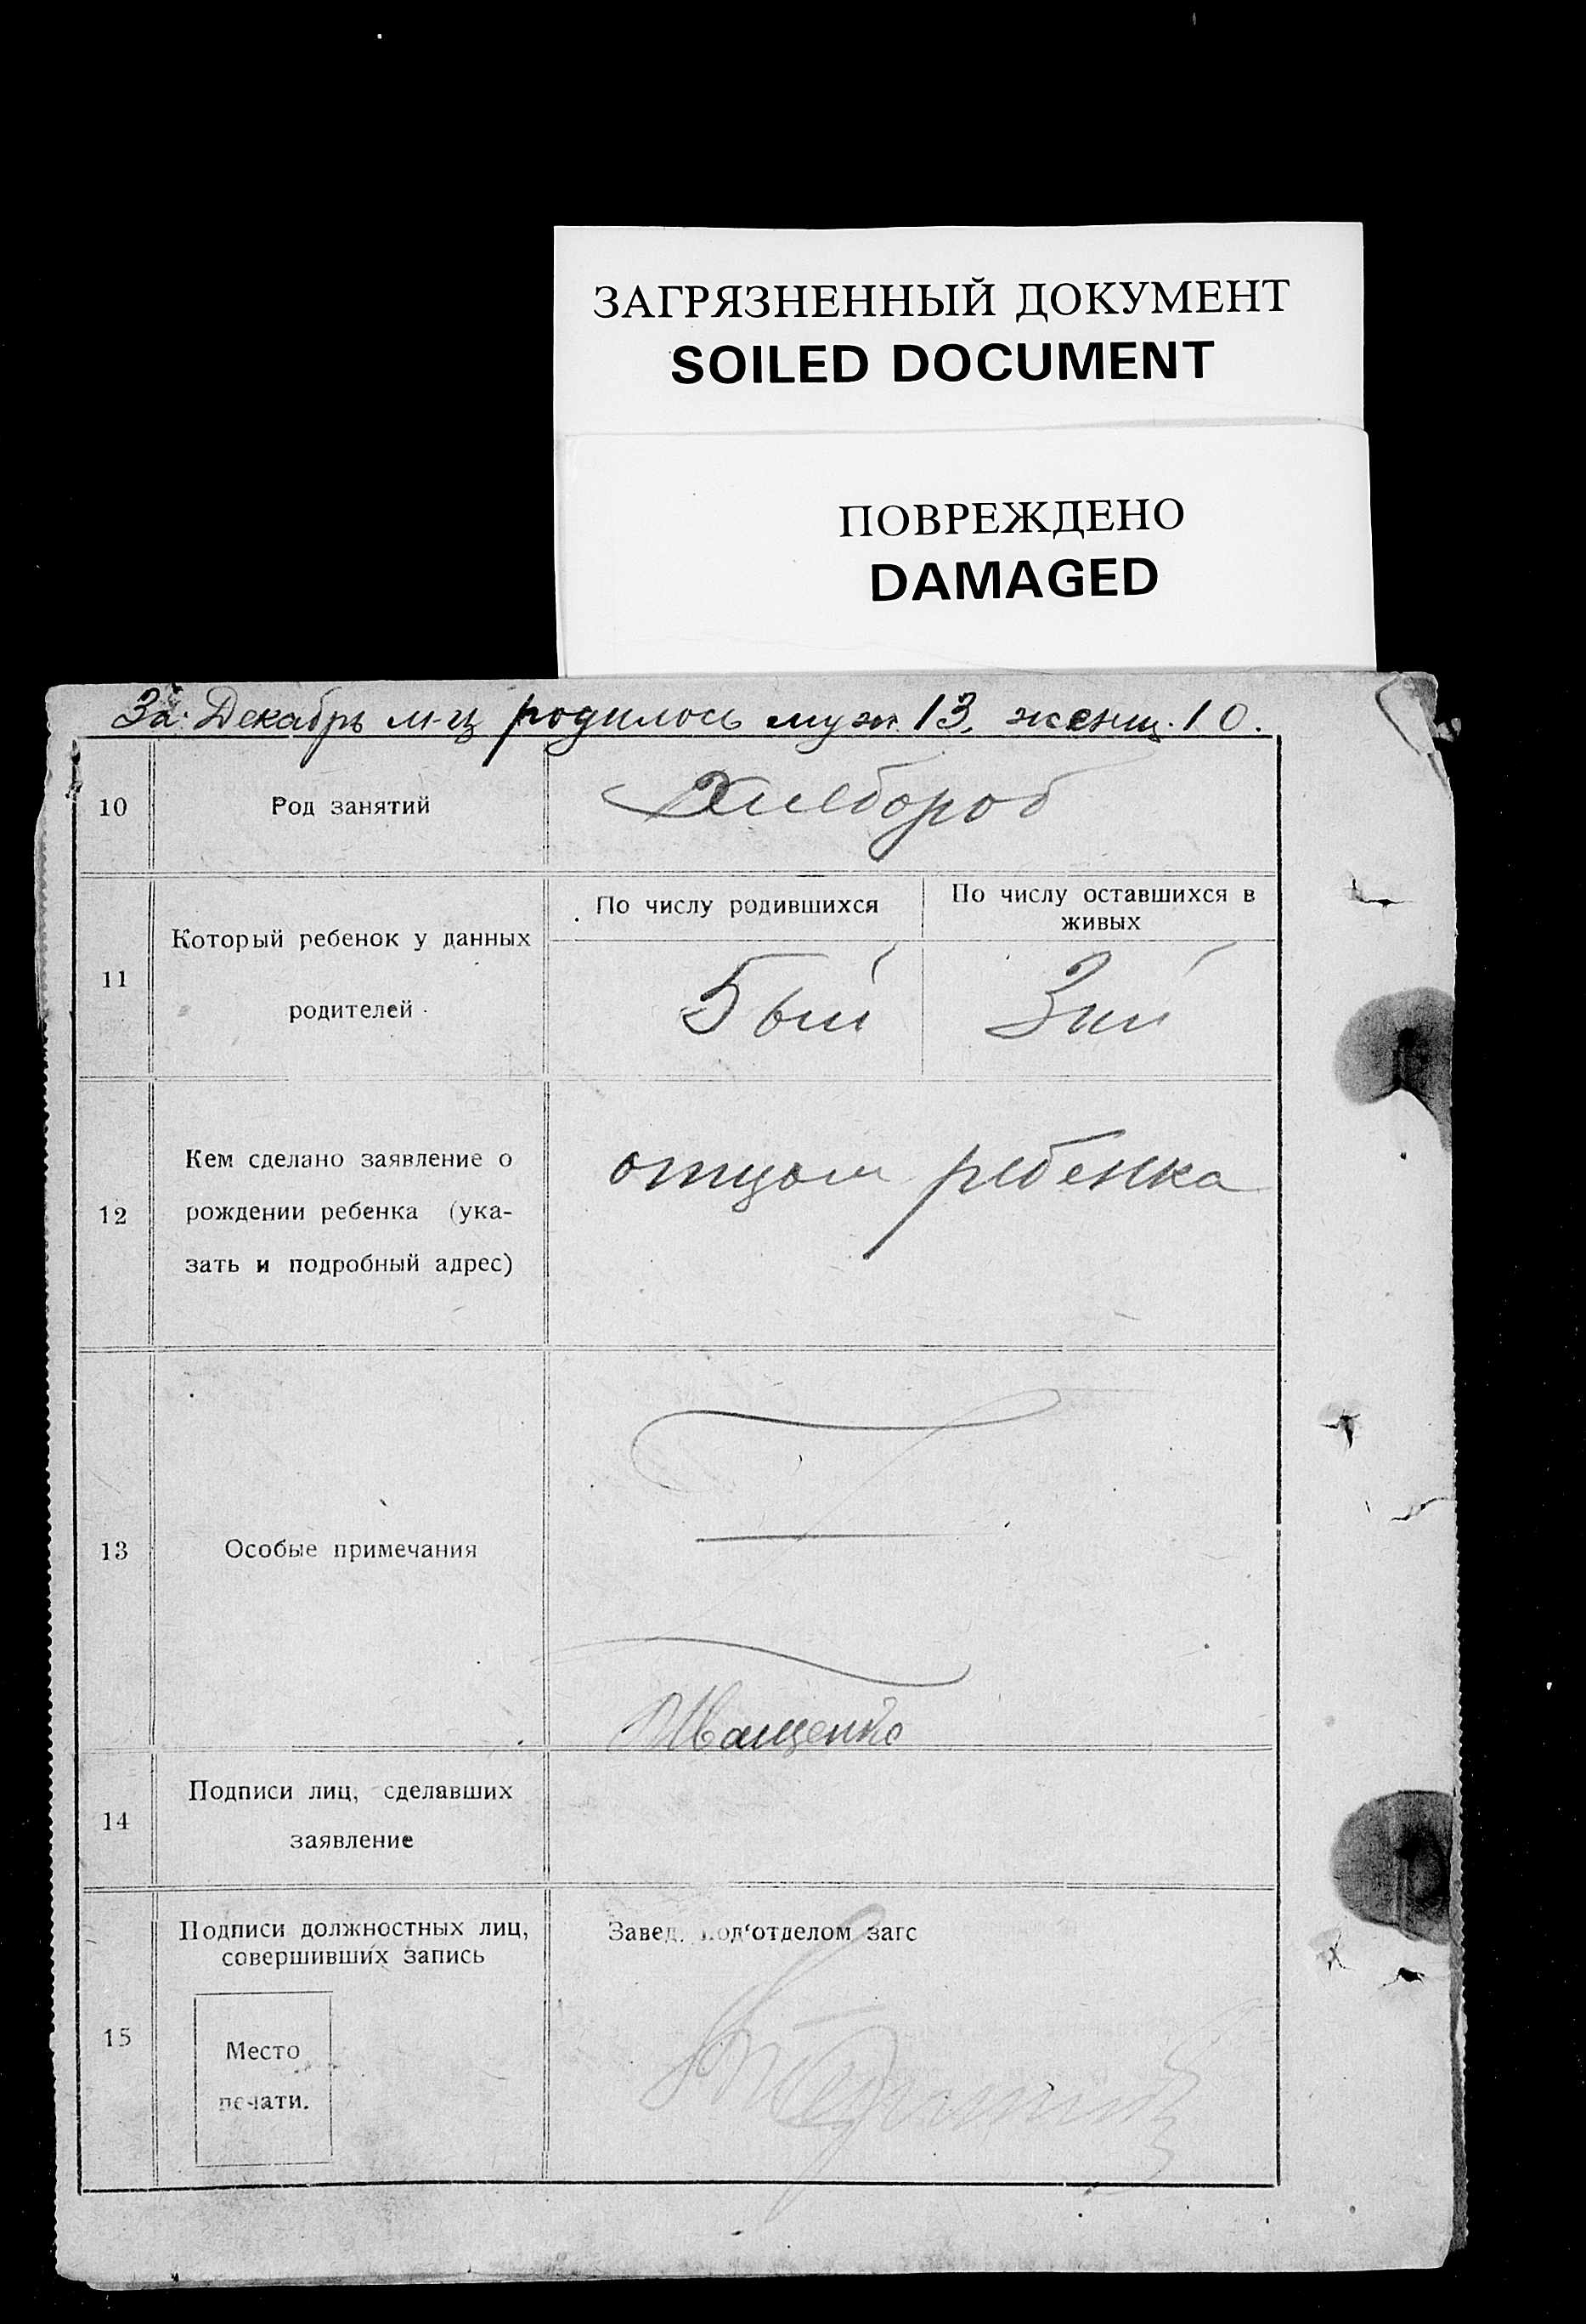 ЗАГРЯЗНЕННЫЙ ДОКУМЕНТ
SOILED DOCUMENT
ПОВРЕЖДЕНО
DAMAGED
За Декабрь м-ц родилось муж. 13. женщ. 10.
10 Род занятий Хлебороб
11 Который ребенок у данных родителей
По числу родившихся
По числу оставшихся в
живых
5ый 3ий
12 Кем сделано заявление о
рождении ребенка (ука-
зать и подробный адрес)
отцом ребенка
13 Особые примечания
Иващенко
14 Подписи лиц, сделавших
заявление
15 Подписи должностных лиц,
совершивших запись
Завед. под‘отделом загс
Место
печати.